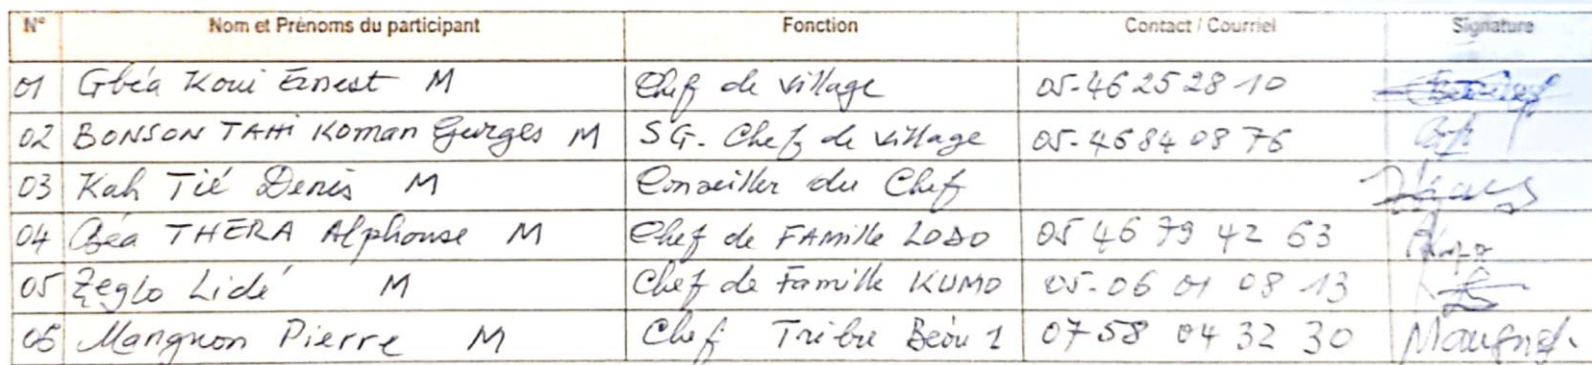 N° Nom et Prénoms du participant Fonction Contact / Courriel Signature
01 Gbéa Koui Ernest M Chef de village 05-46 25 28 10
02 BONSON TAHI Koman Georges M SG. Chef de village 05-46 84 08 76
03 Kah Tié Denis M Conseiller du Chef
04 Géa THERA Alphonse M Chef de FAmille LOBO 05 46 79 42 63
05 Zeglo Lidé M Chef de Famille KUMO 05-06 01 08 13
06 Mangnon Pierre M Chef Tribu Béou 1 07 58 04 32 30